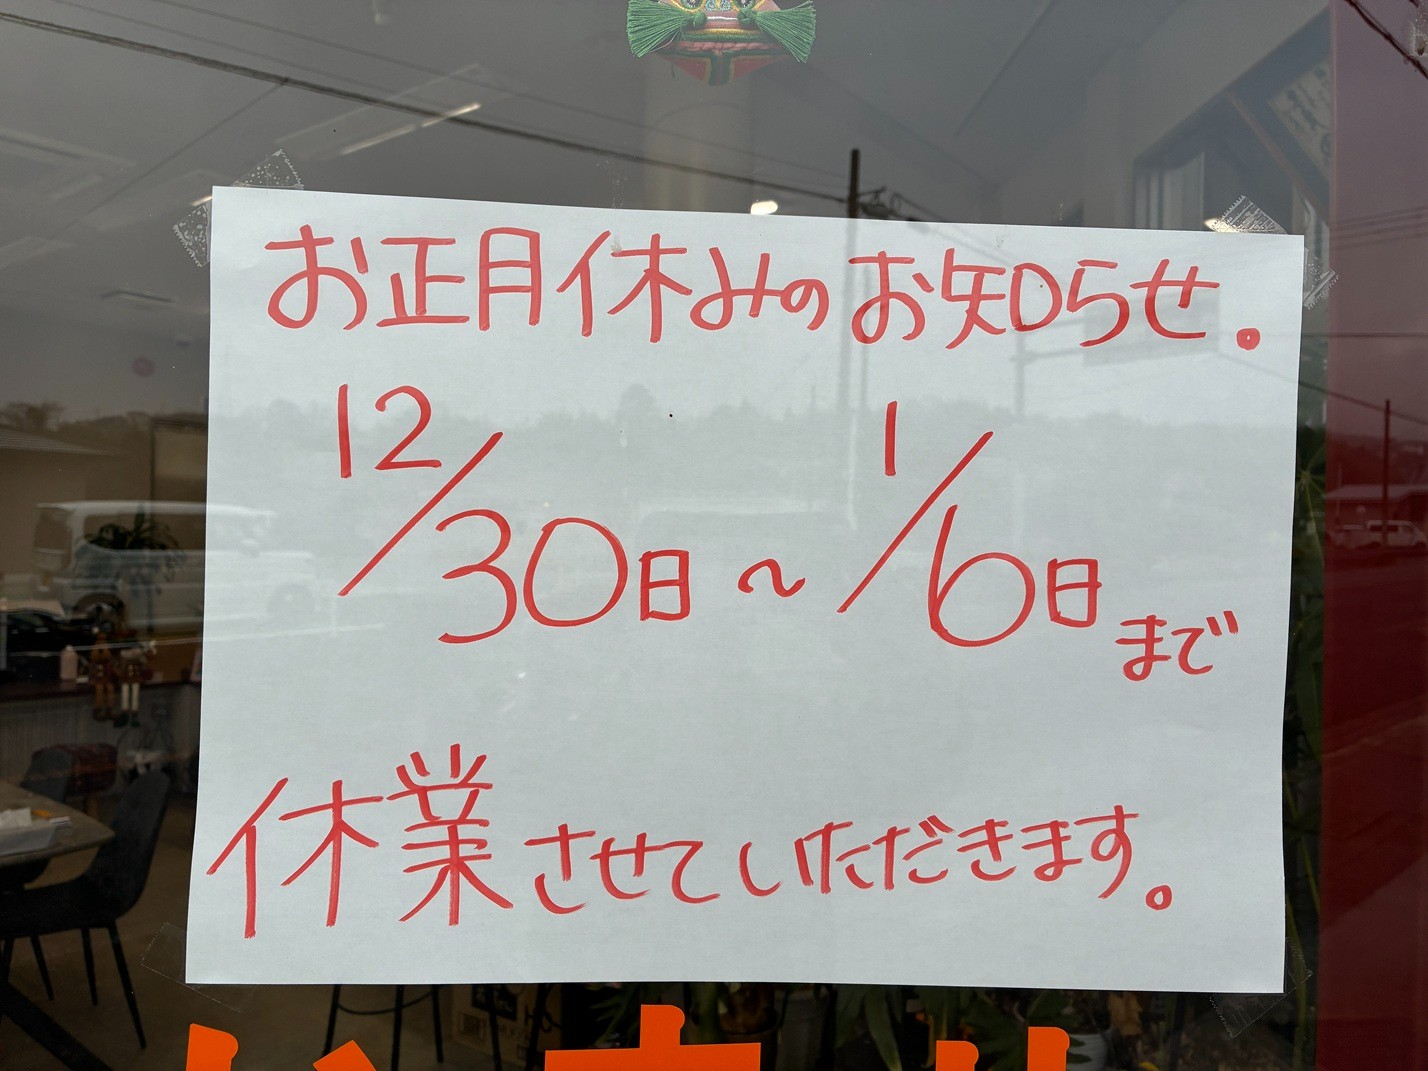 お正月休みのお知らせ。
12/30日～1/6日まで
休業させていただきます。